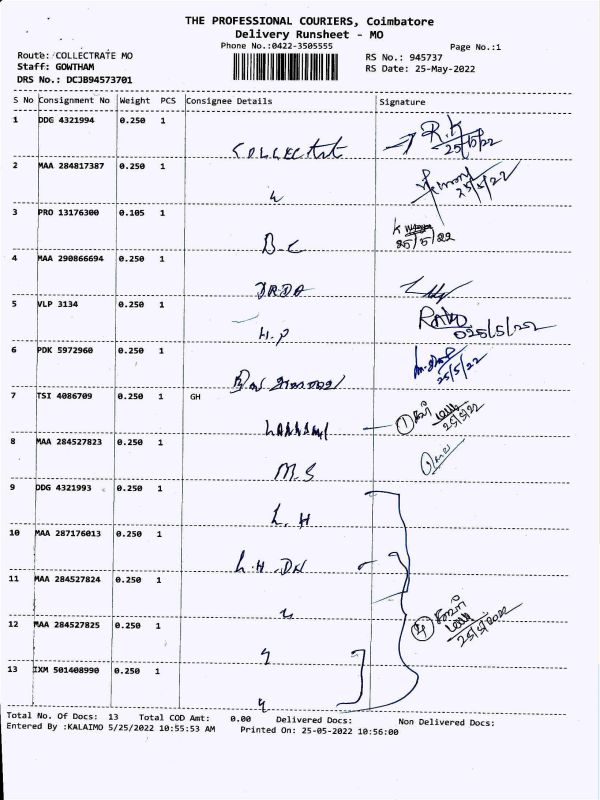 THE PROFESSIONAL COURIERS, Coimbatore
Delivery Runsheet - MO
Phone No.:0422-3505555
Page No.:1
Route: COLLECTRATE MO
RS No.: 945737
Staff: GOWTHAM
RS Date: 25-May-2022
DRS No.: DCJB94573701
S No Consignment No Weight PCS Consignee Details Signature
1 DDG 4321994 0.250 1
25/5/22
2 MAA 284817387 0.250 1
25/5/22
3 PRO 13176300 0.105 1
B-C
25/5/22
4 MAA 290866694 0.250 1
DRDA
5 VLP 3134 0.250 1
H.P
25/5/22
6 PDK 5972960 0.250 1
25/5/22
7 TSI 4086709 0.250 1 GH
25/5/22
8 MAA 284527823 0.250 1
M.S
9 DDG 4321993 0.250 1
L.H
10 MAA 287176013 0.250 1
L.H.DN
11 MAA 284527824 0.250 1
12 MAA 284527825 0.250 1
25/5/2022
13 IXM 501408990 0.250 1
Total No. Of Docs: 13 Total COD Amt: 0.00 Delivered Docs: Non Delivered Docs:
Entered By :KALAIMO 5/25/2022 10:55:53 AM Printed On: 25-05-2022 10:56:00